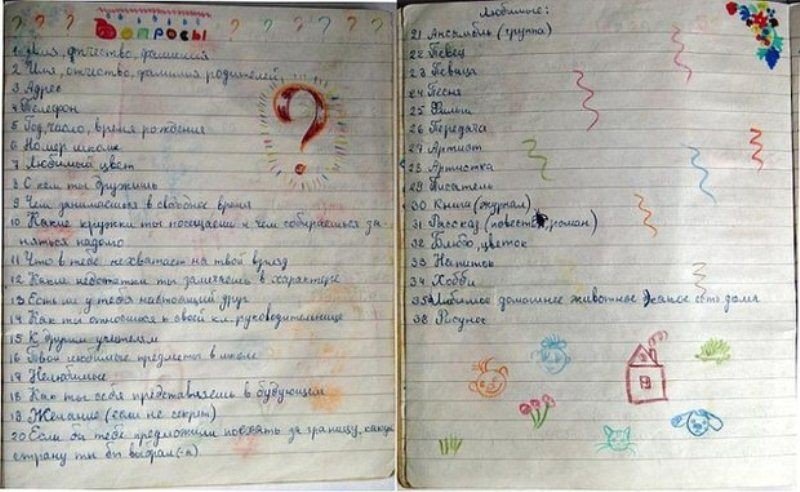 Вопросы
1 Имя, отчество, фамилия
2 Имя, отчество, фамилия родителей
3 Адрес
4 Телефон
5 Год, число, время рождения
6 Номер школы
7 Любимый цвет
8 С кем ты дружишь
9 Чем занимаешься в свободное время
10 Какие кружки ты посещаешь и чем собираешься за
няться надолго
11 Что в тебе нехватает на твой взгляд
12 Какие недостатки ты замечаешь в характере
13 Есть ли у тебя настоящий друг
14 Как ты относишся к своей кл. руководительнице
15 К другим учителям
16 Твои любимые предметы в школе
17 Нелюбимые
18 Как ты себя представляешь в будующем
19 Желание (если не секрет)
20 Если бы тебе предложили поехать за границу, какую
страну ты бы выбрал(-а)
Любимые:
21 Ансамбль (группа)
22 Певец
23 Певица
24 Песня
25 Фильм
26 Передача
27 Артист
28 Артистка
29 Писатель
30 Книга (журнал)
31 Рассказ (повесть, роман)
32 Блюдо, цветок
33 Напиток
34 Хобби
35 Любимое домашнее животное какое есть дома
36 Рисунок